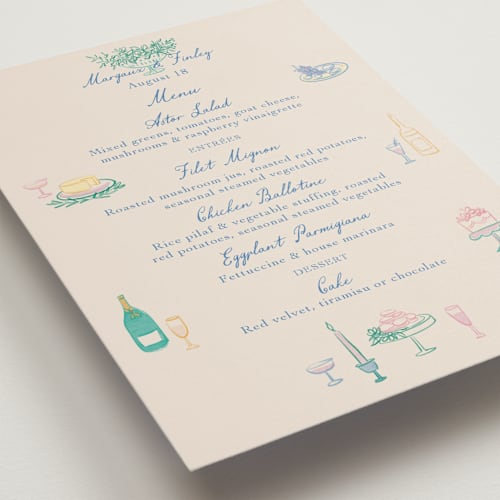 Margaux & Finley
August 18
Menu
Astor Salad
Mixed greens, tomatoes, goat cheese,
mushrooms & raspberry vinaigrette
ENTRÉES
Filet Mignon
Roasted mushroom jus, roasted red potatoes,
seasonal steamed vegetables
Chicken Ballotine
Rice pilaf & vegetable stuffing, roasted
red potatoes, seasonal steamed vegetables
Eggplant Parmigiana
Fettuccine & house marinara
DESSERT
Cake
Red velvet, tiramisu or chocolate